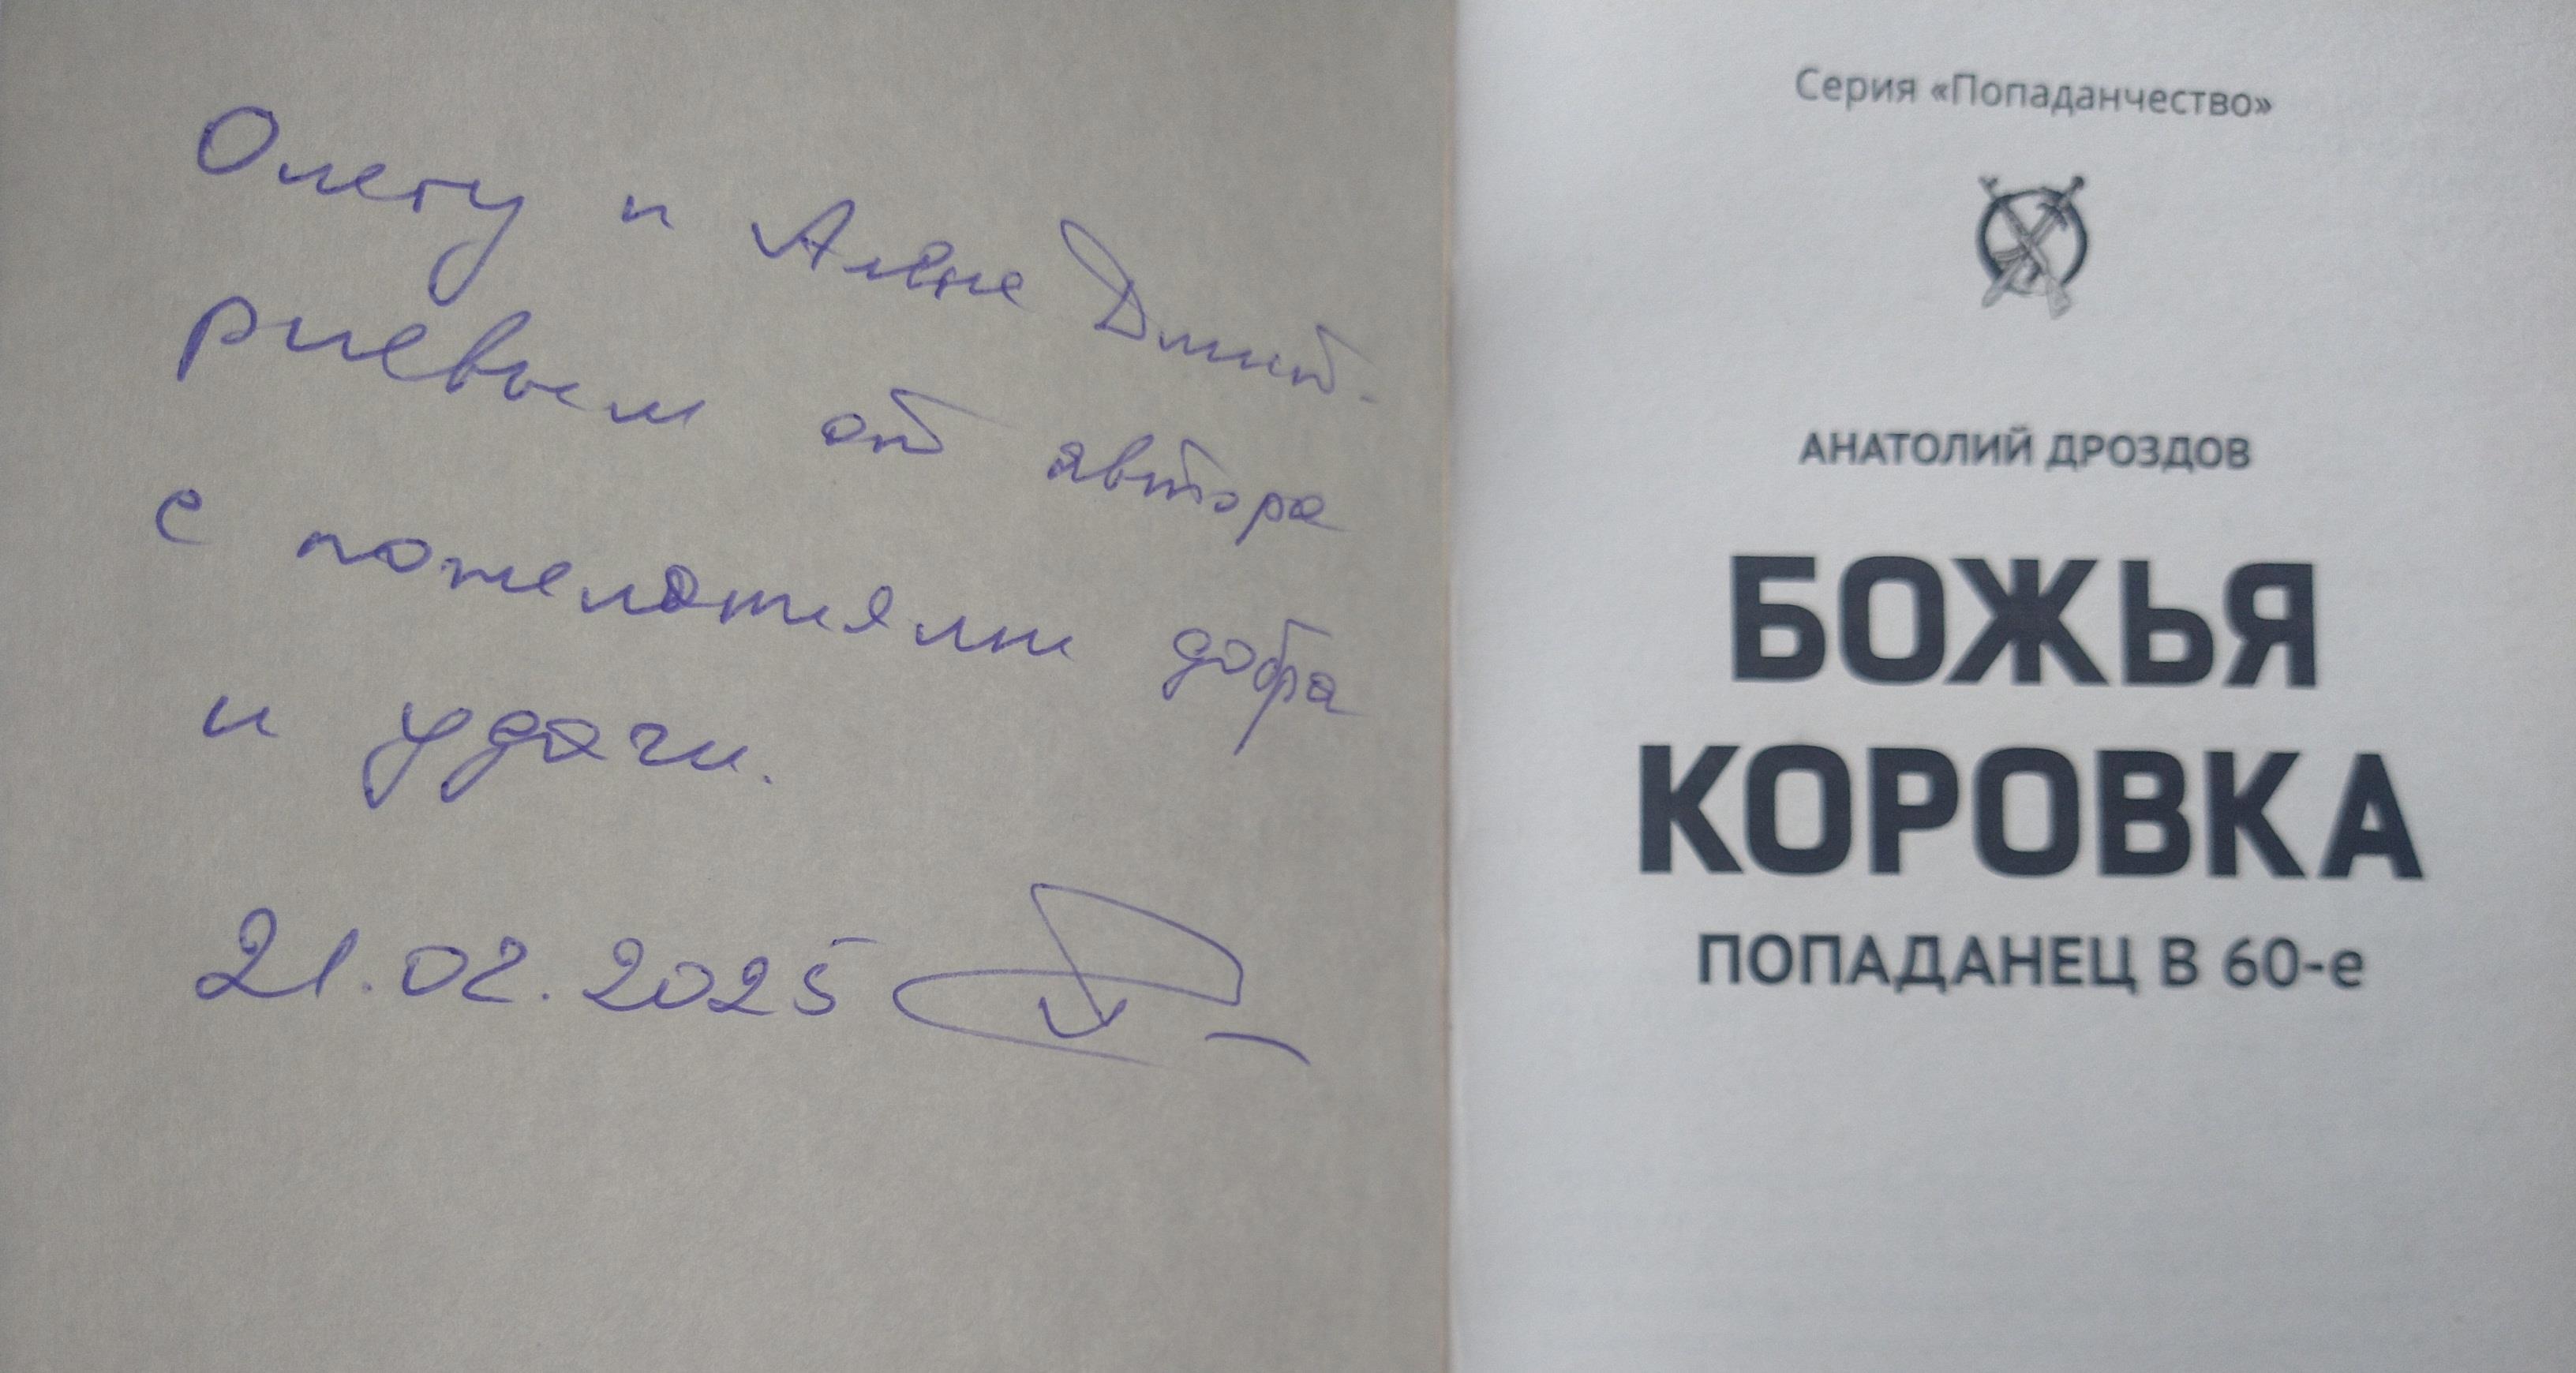 Олегу и Алёне Дмит-
риевым от автора
с пожеланиями добра
и удачи.
21.02.2025
Серия «Попаданчество»
АНАТОЛИЙ ДРОЗДОВ
БОЖЬЯ
КОРОВКА
ПОПАДАНЕЦ В 60-е